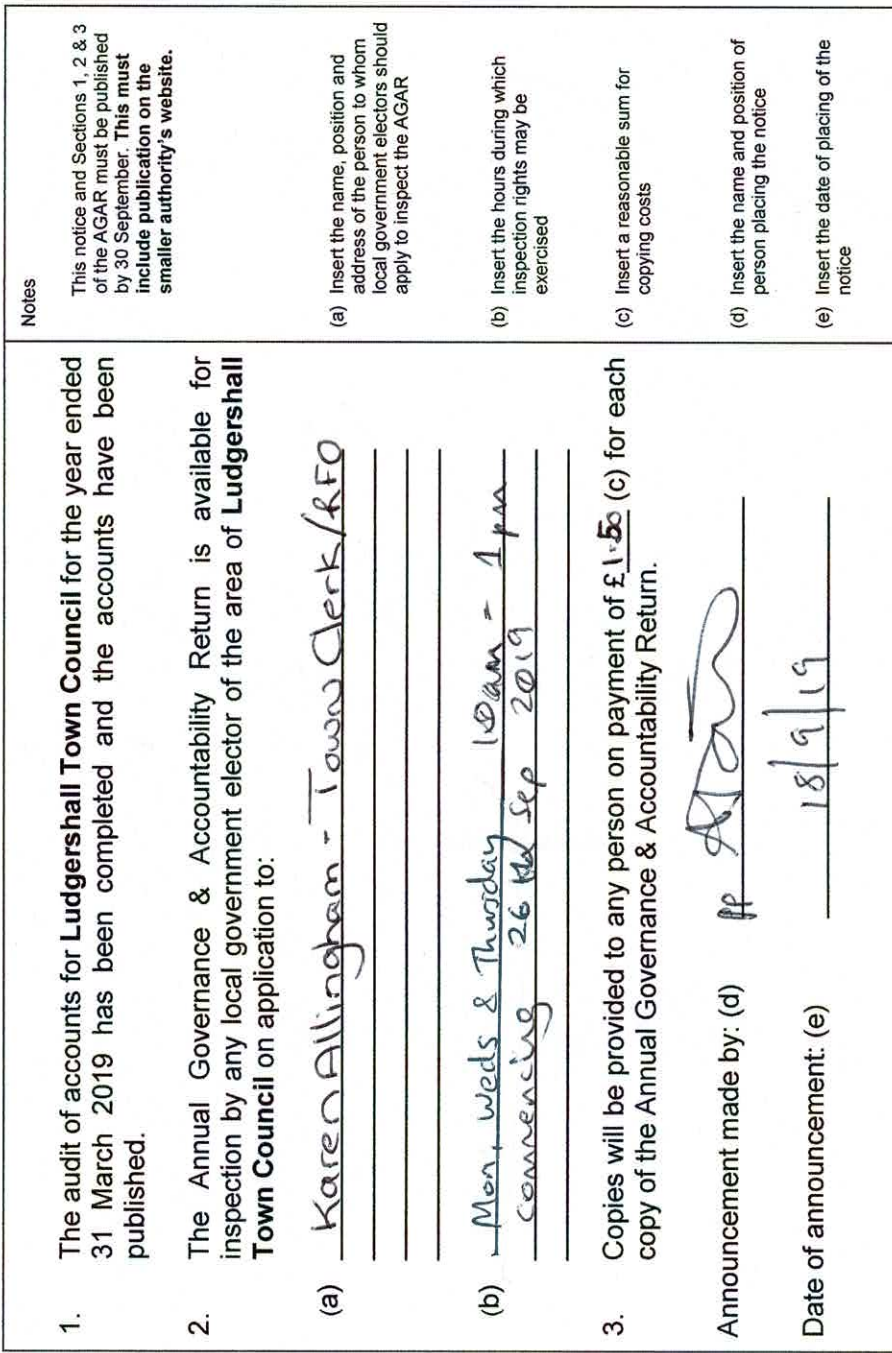 1. The audit of accounts for Ludgershall Town Council for the year ended
31 March 2019 has been completed and the accounts have been
published.
2. The Annual Governance & Accountability Return is available for
inspection by any local government elector of the area of Ludgershall
Town Council on application to:
(a) Karen Allingham - Town Clerk/RFO
(b) Mon, Weds & Thursday 10am - 1pm
commencing 26 Sep 2019
3. Copies will be provided to any person on payment of £1.50 (c) for each
copy of the Annual Governance & Accountability Return.
Announcement made by: (d) pp
Date of announcement: (e) 18/9/19
Notes
This notice and Sections 1, 2 & 3
of the AGAR must be published
by 30 September. This must
include publication on the
smaller authority's website.
(a) Insert the name, position and
address of the person to whom
local government electors should
apply to inspect the AGAR
(b) Insert the hours during which
inspection rights may be
exercised
(c) Insert a reasonable sum for
copying costs
(d) Insert the name and position of
person placing the notice
(e) Insert the date of placing of the
notice